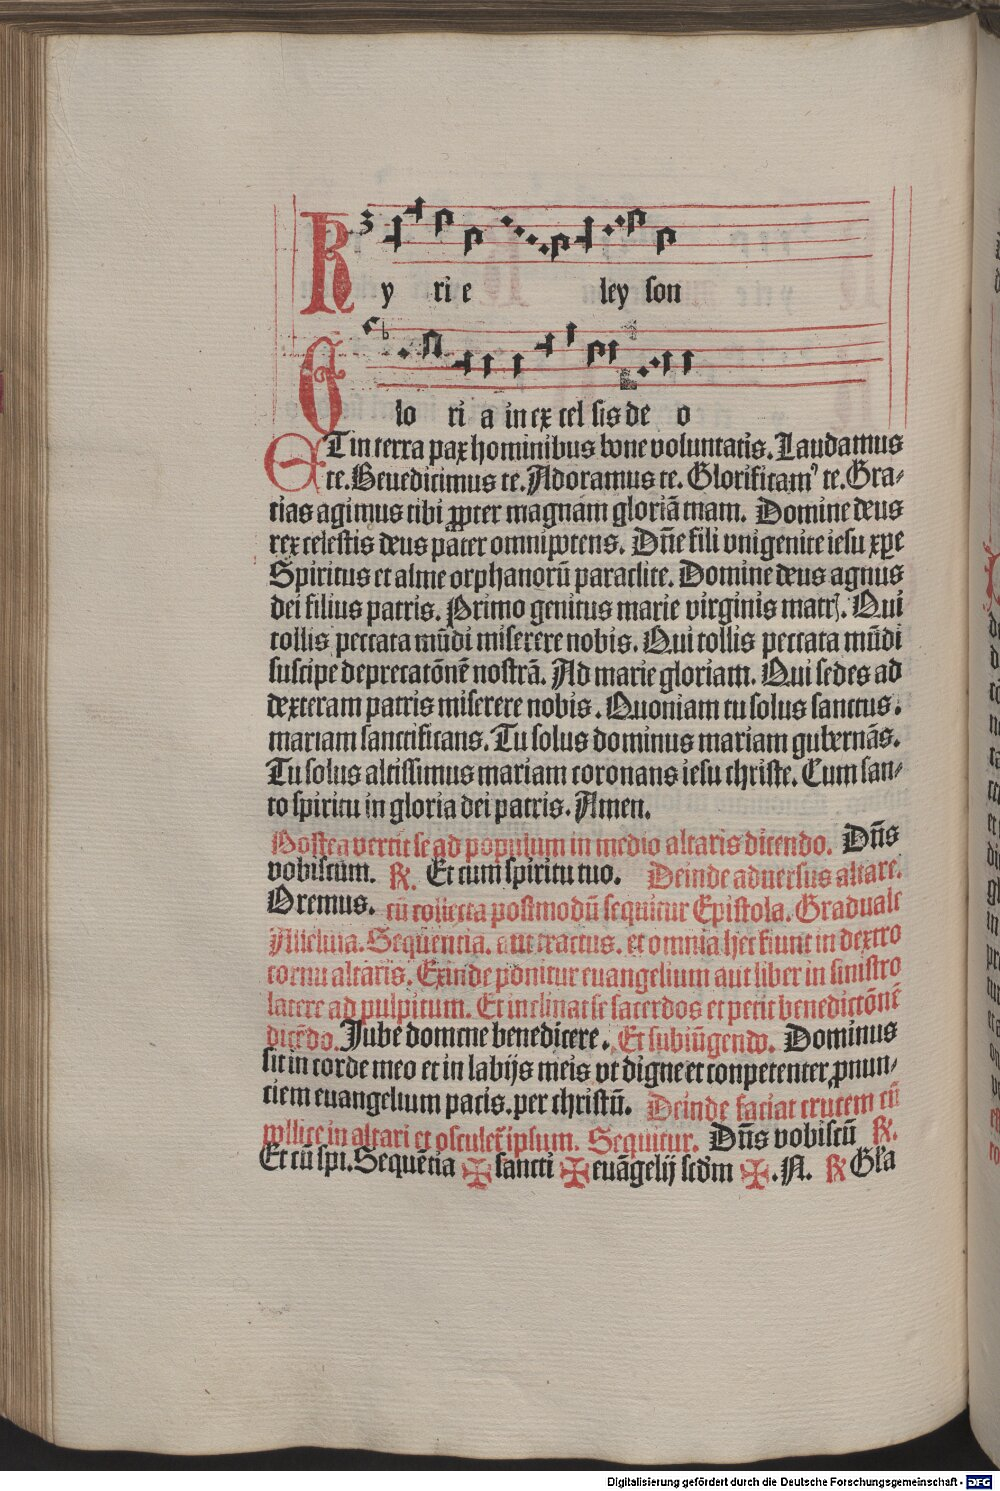 Ky rie ley son
Glo ri a in ex cel sis de o
ET in terra pax hominibus bone voluntatis. Laudamus
te. Benedicimus te. Adoramus te. Glorificamꝰ te. Gra⸗
tias agimus tibi ꝓpter magnam gloriā tuam. Domine deus
rex celestis deus pater omnipotens. Dn̄e fili vnigenite iesu xp̄e
Spiritus et alme orphanorū paraclite. Domine deus agnus
dei filius patris. Primo genitus marie virginis matrꝭ. Qui
tollis peccata mūdi miserere nobis. Qui tollis peccata mūdi
suscipe deprecatōnē nostrā. Ad marie gloriam. Qui sedes ad
dexteram patris miserere nobis. Quoniam tu solus sanctus.
mariam sanctificans. Tu solus dominus mariam gubernās.
Tu solus altissimus mariam coronans iesu christe. Cum san⸗
to spiritu in gloria dei patris. Amen.
Postea vertit se ad populum in medio altaris dicendo. Dn̄s
vobiscum. ℟. Et cum spiritu tuo. Deinde aduersus altare.
Oremus. cū collecta postmodū sequitur Epistola. Graduale
Alleluia. Sequentia. aut tractus. et omnia hec fiunt in dextro
cornu altaris. Exinde ponitur euangelium aut liber in sinistro
latere ad pulpitum. Et inclinat se sacerdos et petit benedictōnē
dicēdo. Jube domne benedicere. Et subiūgendo. Dominus
sit in corde meo et in labijs meis vt digne et conpetenter ꝓnun⸗
ciem euangelium pacis. per christū. Deinde faciat crucem cū
pollice in altari et osculet᷑ ipsum. Sequitur. Dn̄s vobiscū ℟.
Et cū spi. Sequētia ✠ sancti ✠ euāgelij scd̄m ✠ .N. ℟ Gl̄a
Digitalisierung gefördert durch die Deutsche Forschungsgemeinschaft - DFG